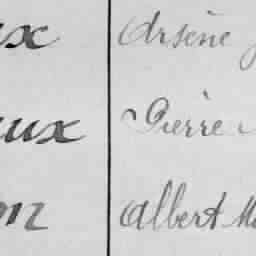 ux Arsène
aux Pierre
on Albert